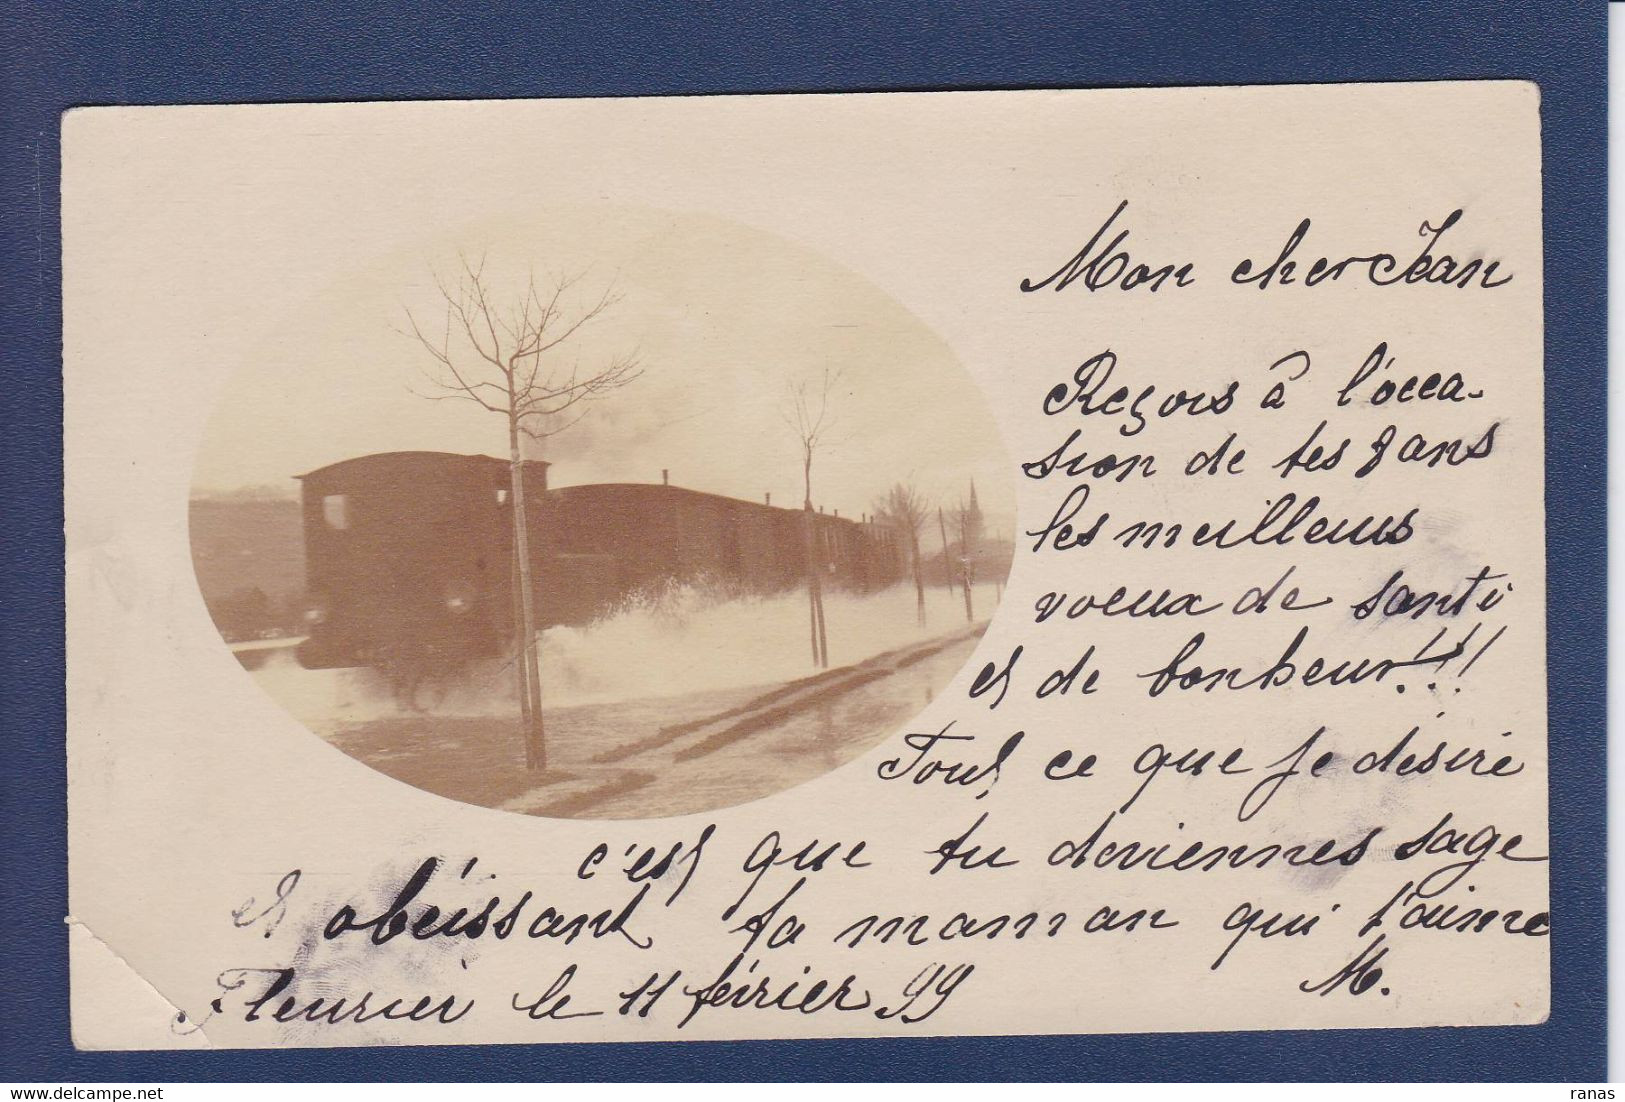 Mon cher Jean
Reçois à l'occa-
sion de tes 8 ans
les meilleurs
voeux de santé
et de bonheur!!!
Tout ce que je désire
c'est que tu deviennes sage
et obéissant ta maman qui t'aime
Fleurier le 11 février 99 M.
© www.delcampe.net
ranas